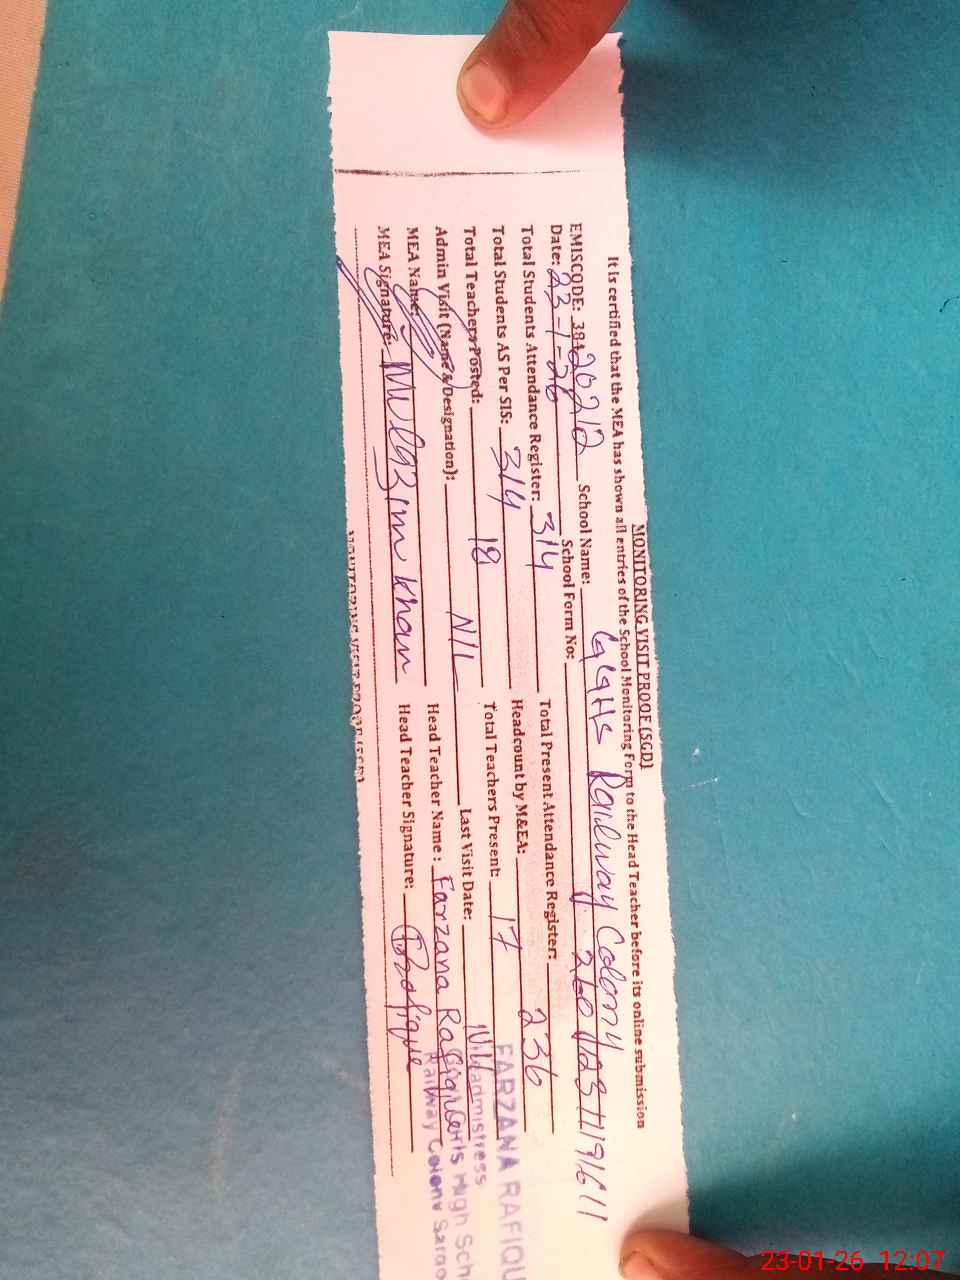 MONITORING VISIT PROOF (SGD)
It is certified that the MEA has shown all entries of the School Monitoring Form to the Head Teacher before its online submission
EMISCODE: 38420212 School Name: GGHS Railway Colony
Date: 23-1-26 School Form No: 26012311191611
Total Students Attendance Register: 314 Total Present Attendance Register:
Total Students AS Per SIS: 314 Headcount by M&EA: 236
Total Teachers Posted: 18 Total Teachers Present: 17
Admin Visit (Name & Designation): NIL Last Visit Date: Nil
MEA Name: Mulazim Khan Head Teacher Name: Farzana Rafique
MEA Signature: Head Teacher Signature: Rafique
FARZANA RAFIQU
admistress
Girls High Sch
Railway Colony Sargo
MONITORING VISIT PROOF (SGD)
23-01-26 12:07